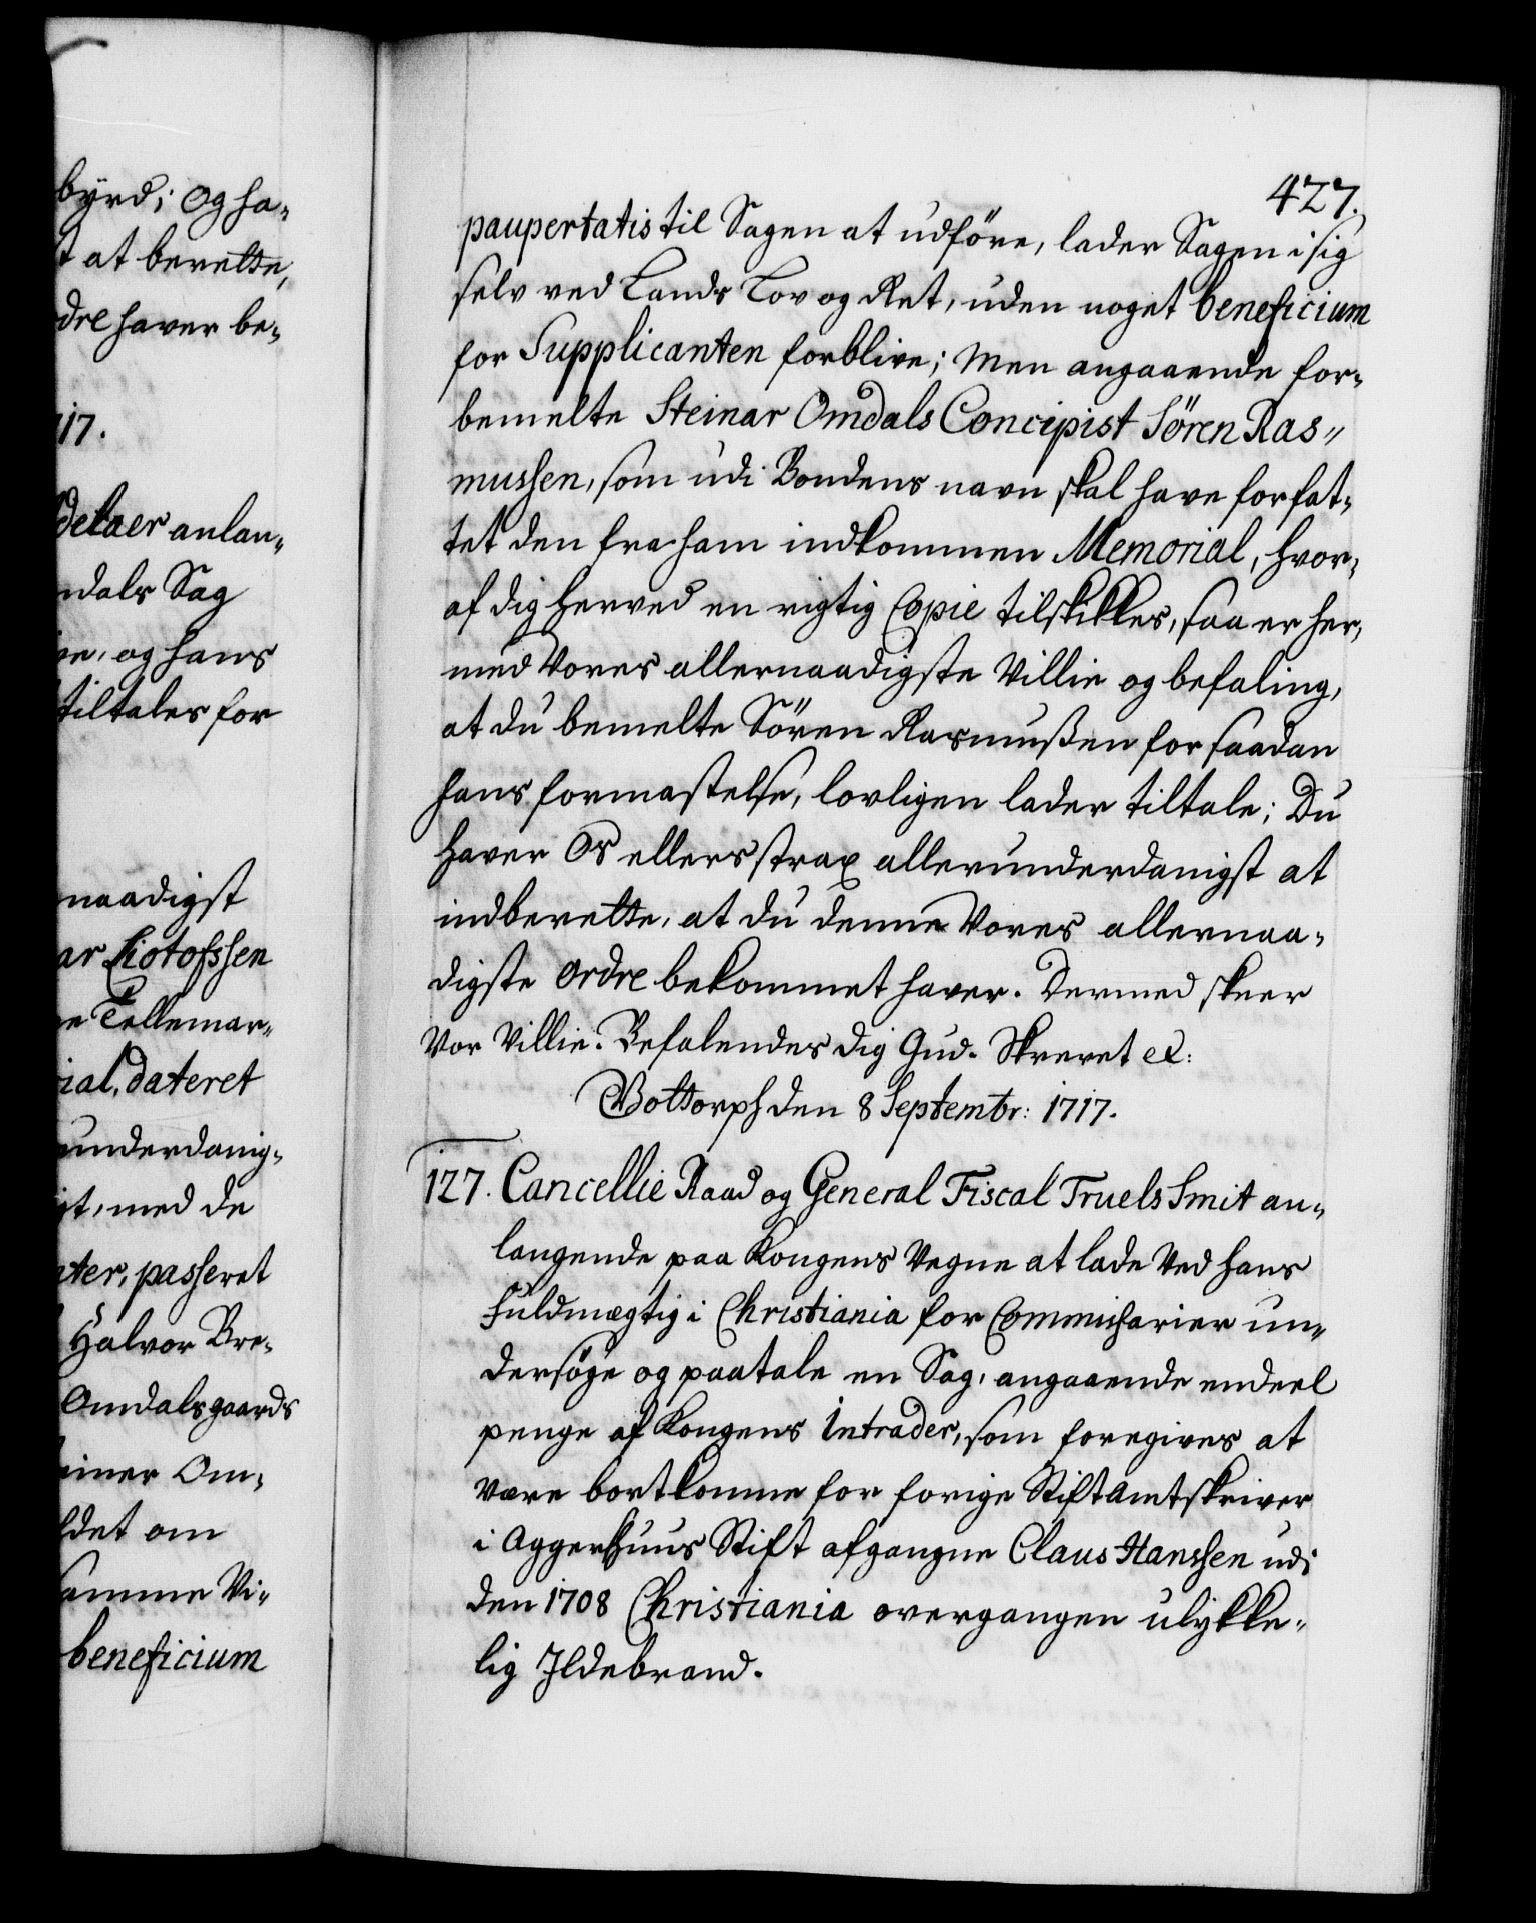 byrd; Og ha-
at berette,
dre haver be-
17.
delaer anlan-
ndals Sag
og hans
tiltales for
naadigst
ar Liotofssen
e Tellemar-
ial, dateret
underdanig-
it, med de
ter, passeret
Halvor Bre-
Omdalsgaards
einer Om-
ldet om
samme Vi-
beneficium
427.
paupertatis til Sagen at udföre, lader Sagen i sig
selv ved Lands Lov og Ret, uden noget beneficium
for Supplicanten forblive; Men angaaende for-
bemelte Steinar Omdals Concipist Sören Ras-
mussen, som udi Bondens navn skal have forfat-
tet den fra ham indkommen Memorial, hvor-
af dig herved en rigtig Copie tilskikkes, saa er her,
med Vores allernaadigste Villie og befaling,
at du bemelte Sören Rasmußen for saadan
hans formastelse, lovligen lader tiltale; Du
haver Os ellers strax allerunderdanigst at
indberette, at du denne Vores allernaa-
digste Ordre bekommet haver. Dermed skeer
Vor Villie. Befalendes dig Gud. Skrevet etc:
Gottorph den 8 Septembr: 1717.
127. Cancellie Raad og General Fiscal Truels Smit an-
langende paa Kongens Vegne at lade Ved hans
Fuldmægtig i Christiania for Commissarier un-
dersöge og paatale en Sag, angaaende endeel
penge af Kongens Intrader, som foregives at
være bortkomne for forige Stiftamtskriver
i Aggershuus Stift afgangne Claus Hanssen udi
den 1708 Christiania overgangen ulykke-
lig Ildebrand.